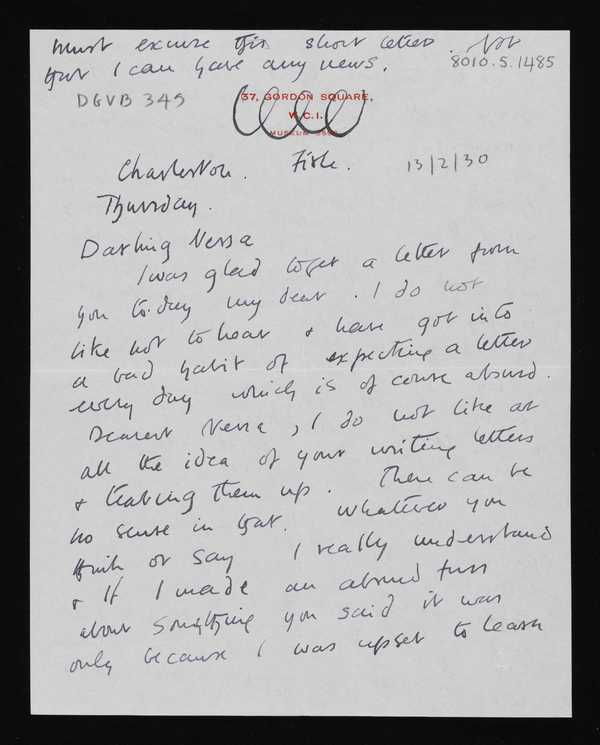 must excuse this short letter. Not
that I can have any news.
8010.5.1485
DGVB 345
37, GORDON SQUARE,
W.C.1.
MUSEUM
Charleston. Firle. 13/2/30
Thursday.
Darling Nessa
I was glad to get a letter from
you to-day my dear. I do not
like not to hear & have got into
a bad habit of expecting a letter
every day which is of course absurd.
Dearest Nessa, I do not like at
all the idea of your writing letters
& tearing them up. There can be
no sense in that. Whatever you
think or say I really understand
& If I made an absurd fuss
about something you said it was
only because I was upset to learn